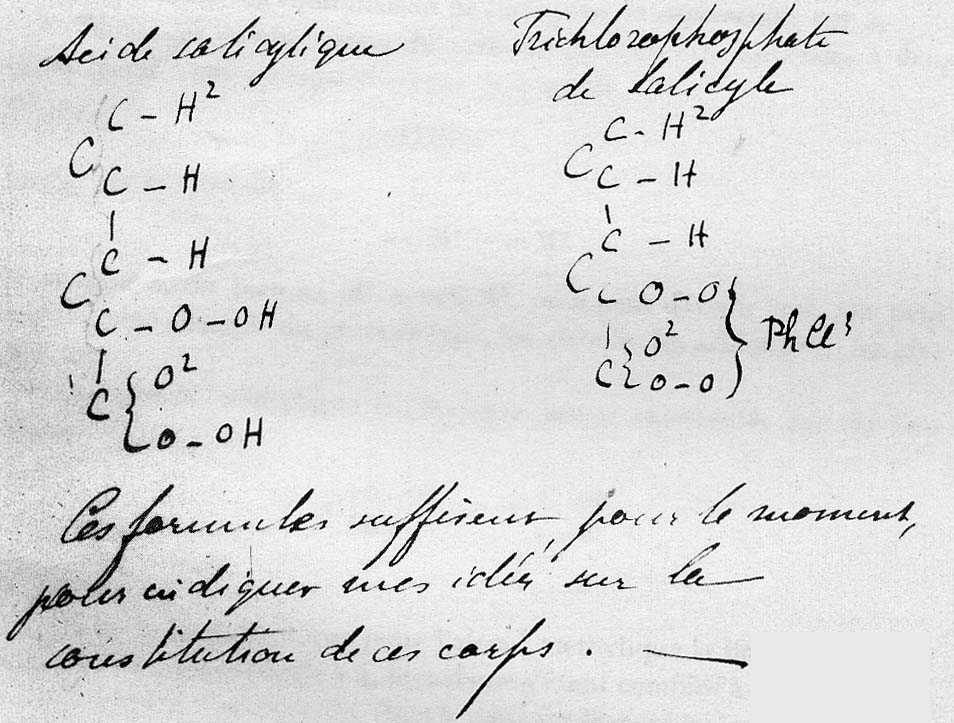 Acide salicylique
C - H²
C
C - H
C - H
C
C - O - OH
C { O²
O - OH
Trichlorophosphate
de salicyle
C - H²
C
C - H
C - H
C
C O - O
C { O²
O - O
} PhCl³
Ces formules suffisent, pour le moment,
pour indiquer mes idées sur la
constitution de ces corps. —